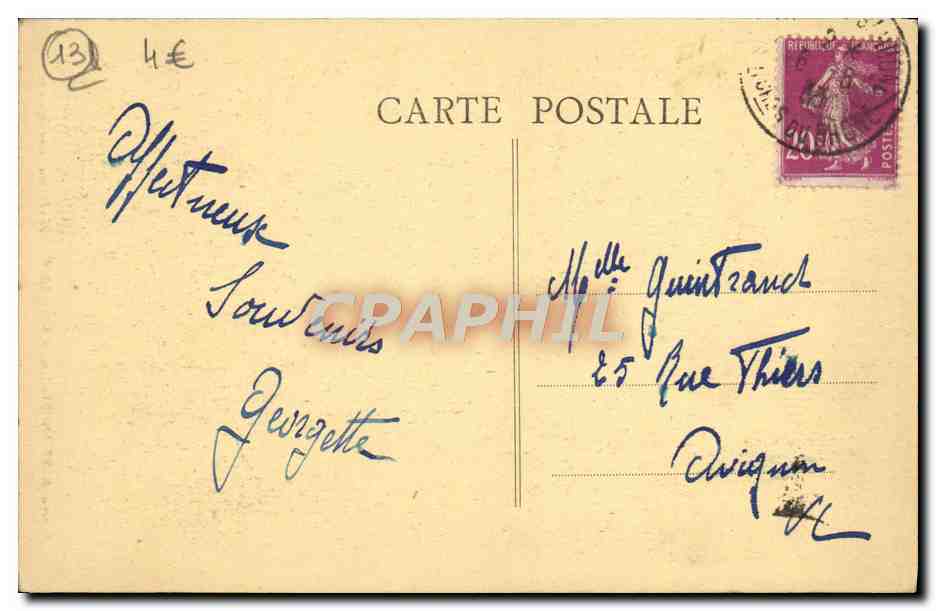 13 4€
CARTE POSTALE
REPUBLIQUE FRANCAISE
20c
POSTES
BOUCHES DU RHONE
Affectueux
Souvenirs
Georgette
CPAPHIL
Melle Guintrand
25 Rue Thiers
Avignon